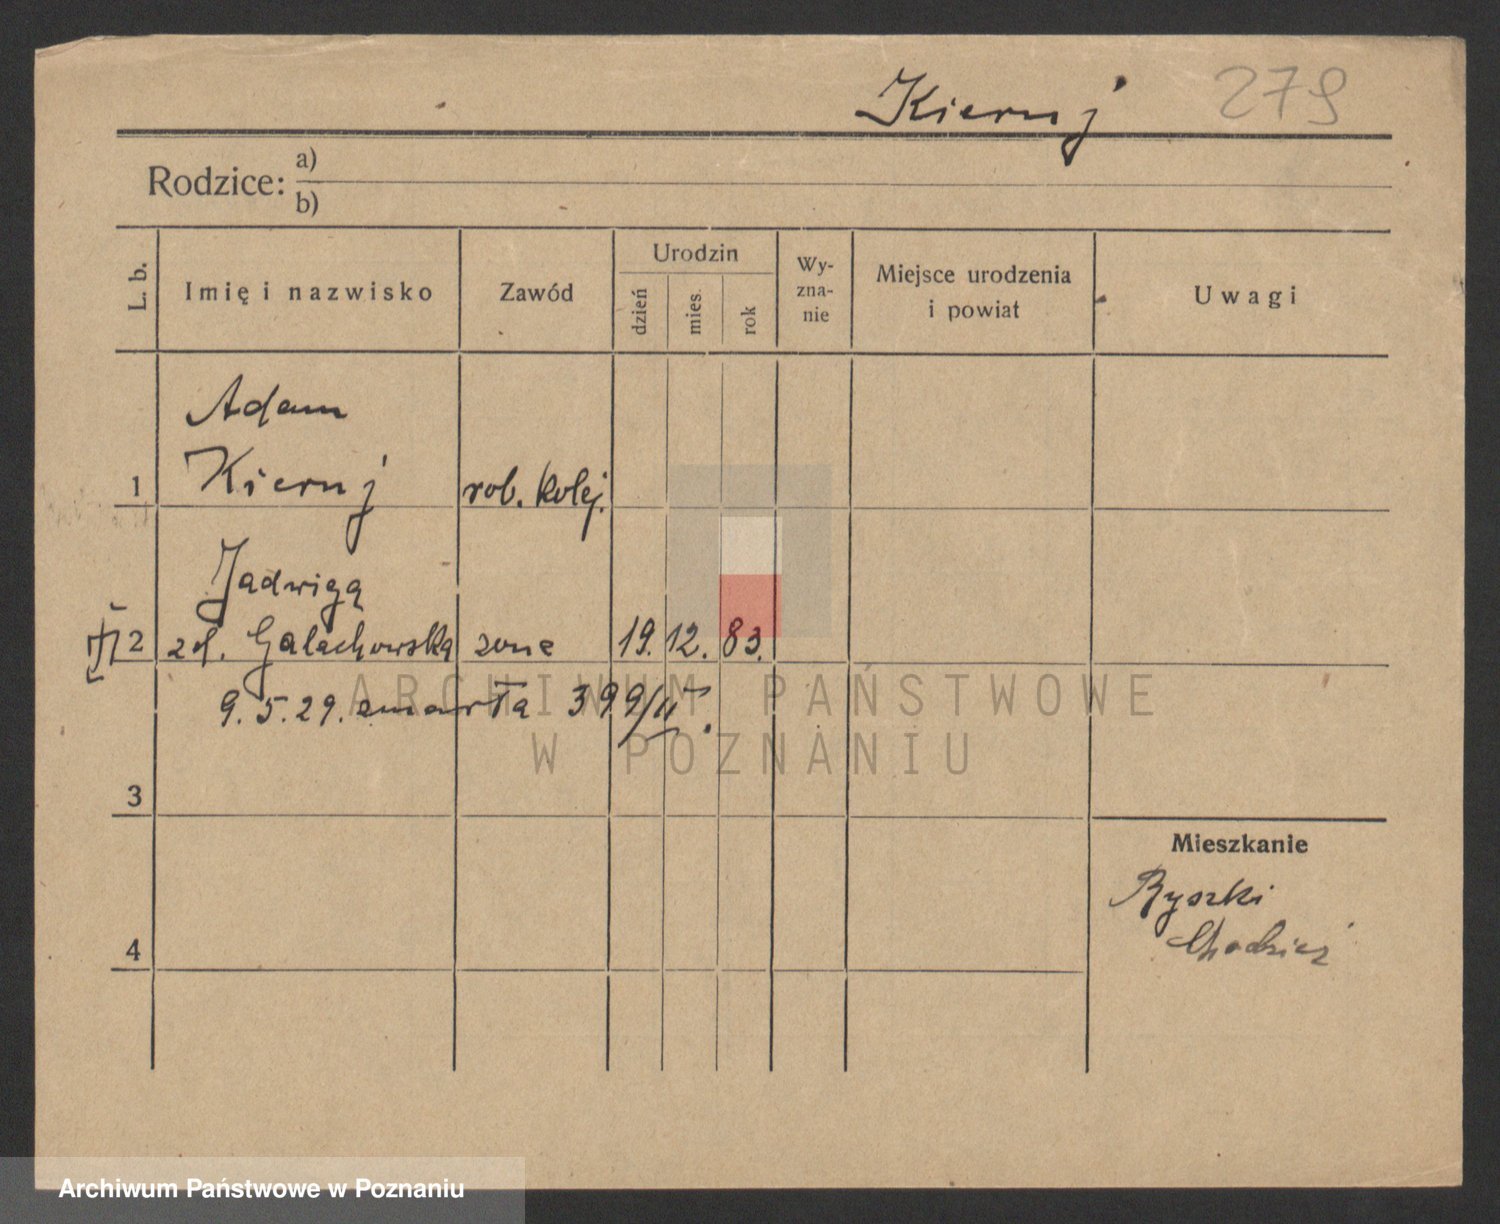 Kiernj 279
Rodzice: a)
b)
L. b.
Imię i nazwisko
Zawód
Urodzin
dzień
mies.
rok
Wy-
zna-
nie
Miejsce urodzenia
i powiat
Uwagi
Adam
1 Kiernj rob. kolej.
Jadwiga
2 zd. Galachowska żona 19. 12. 83.
9. 5. 29. zmarła 399/II.
3
4
Mieszkanie
Ryszki
Chodzież
ARCHIWUM PAŃSTWOWE
W POZNANIU
Archiwum Państwowe w Poznaniu